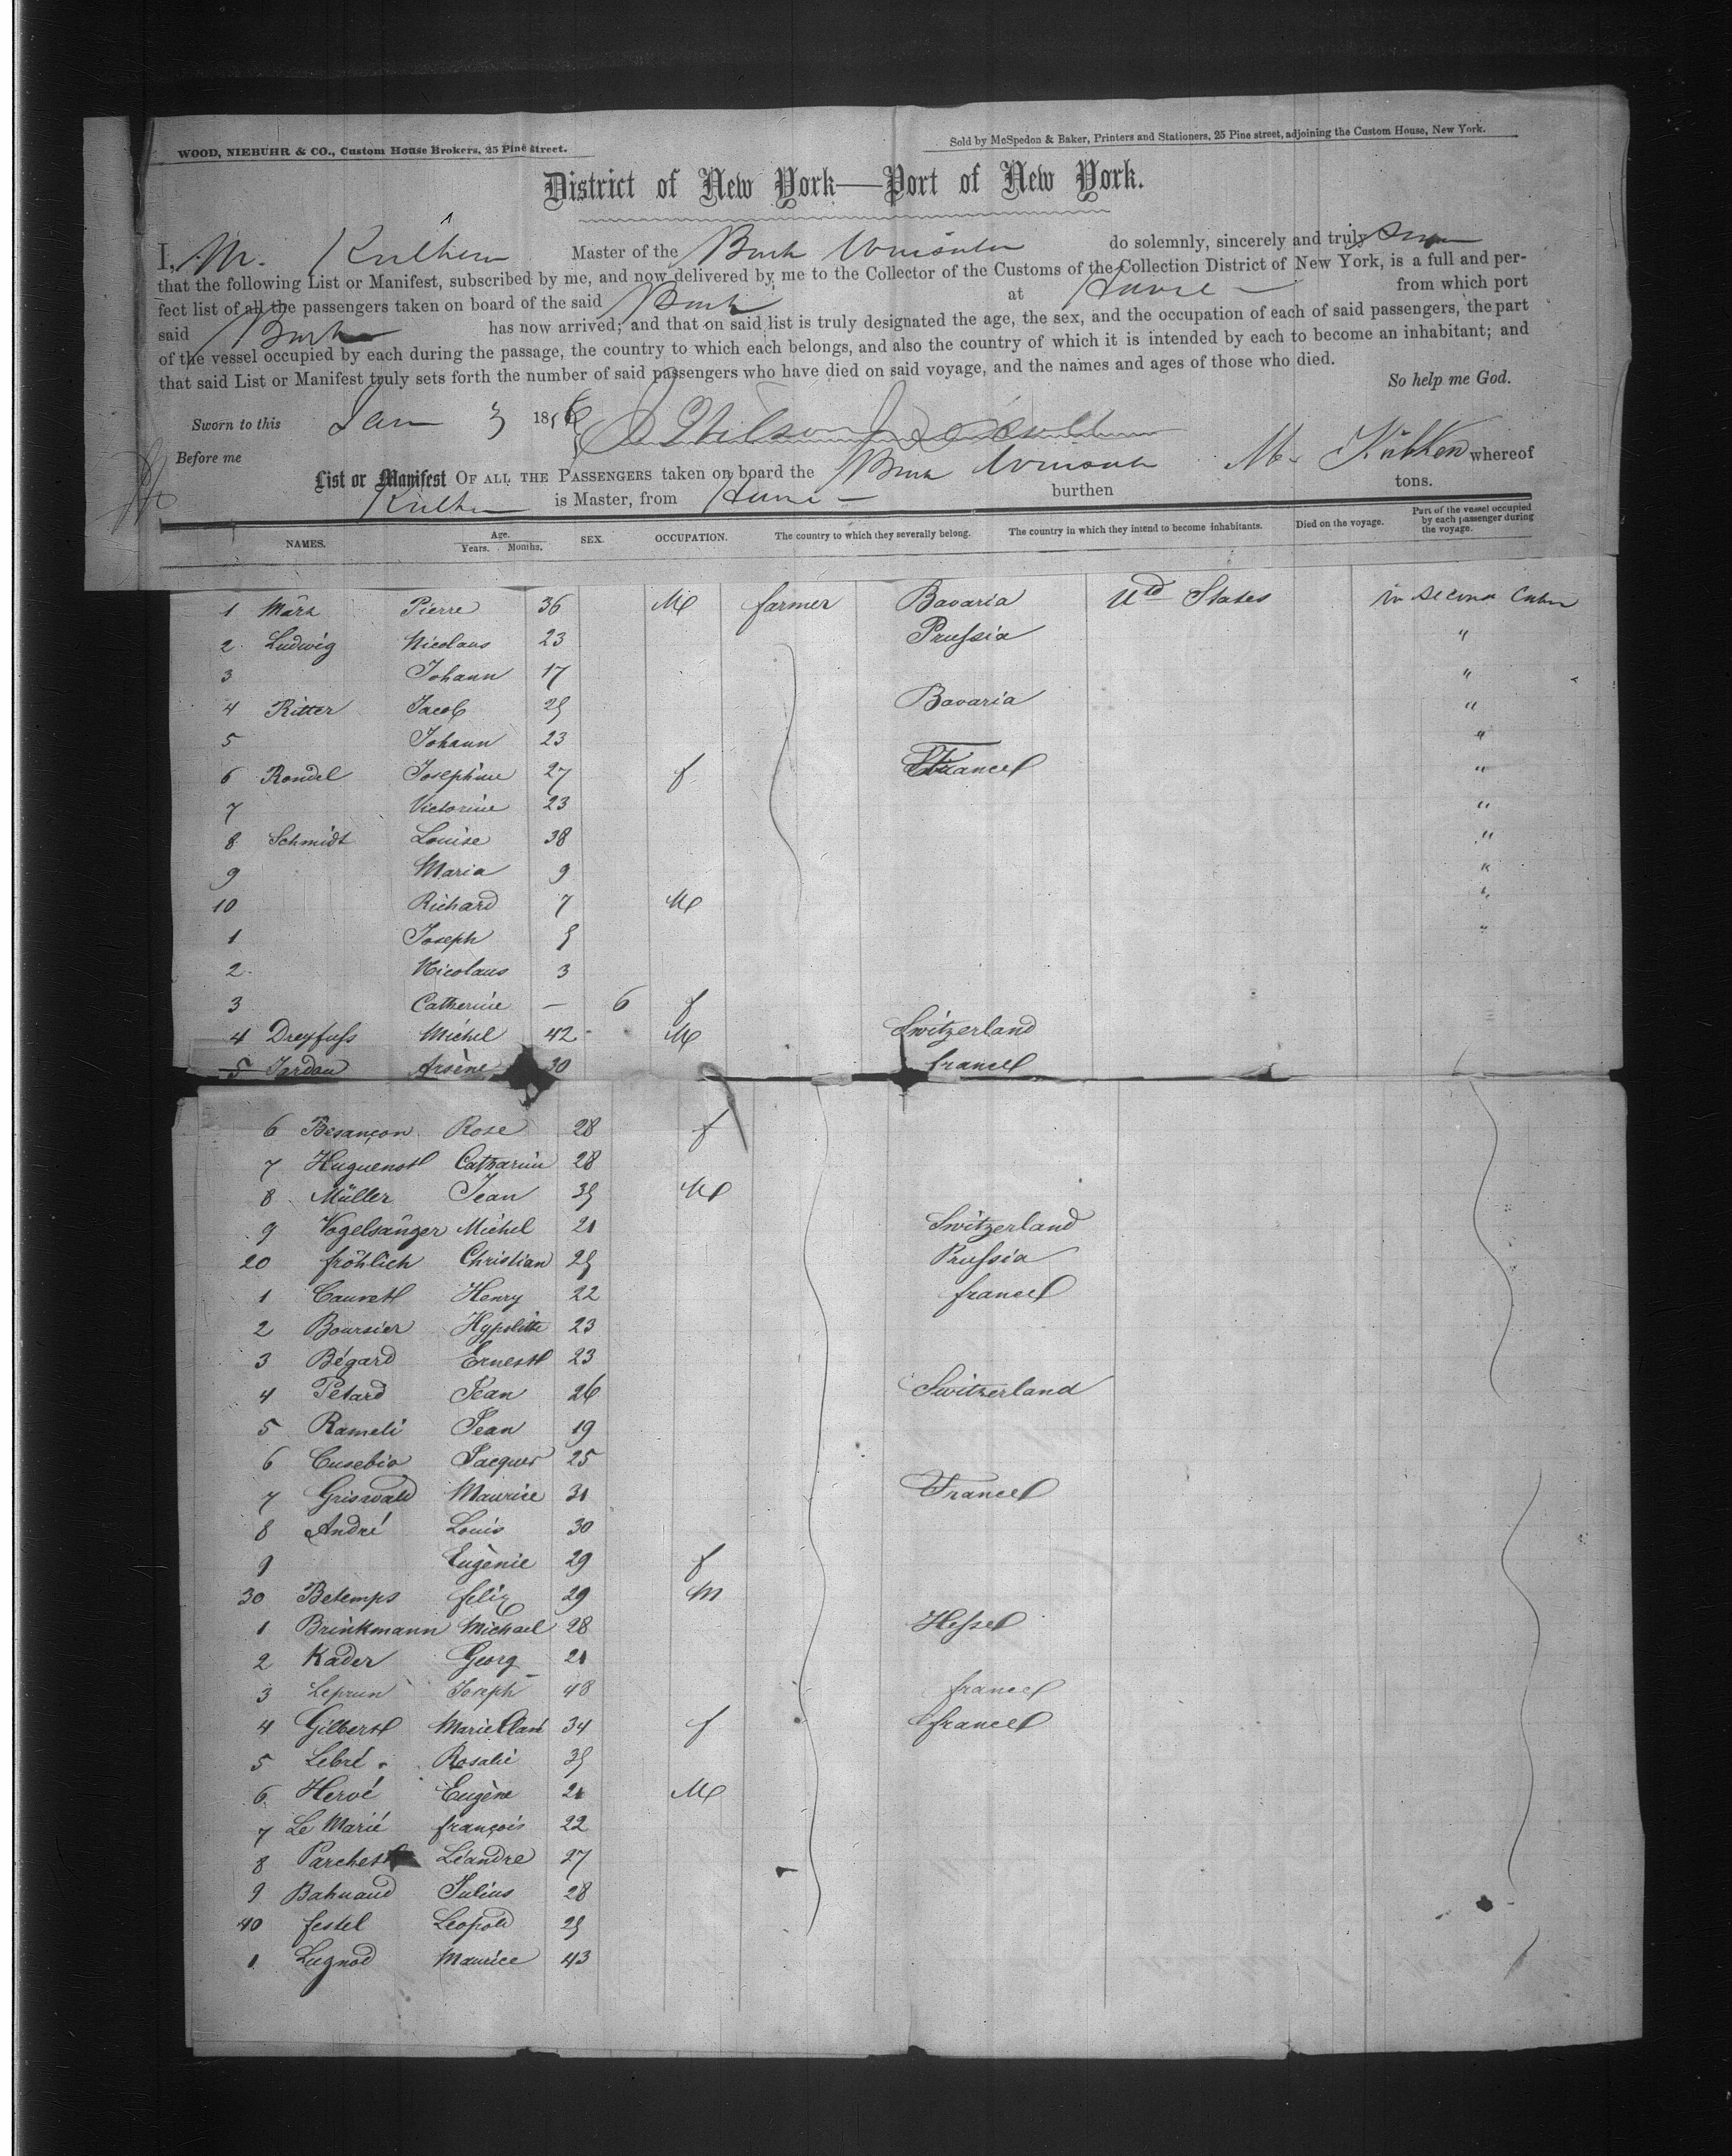 WOOD, NIEBUHR & CO., Custom House Brokers, 25 Pine street.
Sold by McSpedon & Baker, Printers and Stationers, 25 Pine street, adjoining the Custom House, New York.
District of New York—Port of New York.
I, M. Master of the Bark do solemnly, sincerely and truly
that the following List or Manifest, subscribed by me, and now delivered by me to the Collector of the Customs of the Collection District of New York, is a full and per-
fect list of all the passengers taken on board of the said Bark at Havre from which port
said Bark has now arrived; and that on said list is truly designated the age, the sex, and the occupation of each of said passengers, the part
of the vessel occupied by each during the passage, the country to which each belongs, and also the country of which it is intended by each to become an inhabitant; and
that said List or Manifest truly sets forth the number of said passengers who have died on said voyage, and the names and ages of those who died.
So help me God.
Sworn to this Jan 3 1856
Before me
List or Manifest OF ALL THE PASSENGERS taken on board the Bark M. Külken whereof
is Master, from Havre burthen tons.
NAMES. Age. Years. Months. SEX. OCCUPATION. The country to which they severally belong. The country in which they intend to become inhabitants. Died on the voyage. Part of the vessel occupied by each passenger during the voyage.
1 März Pierre 36 M farmer Bavaria Utd States in second Cabin
2 Ludwig Nicolaus 23 Prussia "
3 Johann 17 "
4 Ritter Jacob 25 Bavaria "
5 Johann 23 "
6 Rondel Josephine 27 f France "
7 Victorine 23 "
8 Schmidt Louise 38 "
9 Maria 9 "
10 Richard 7 M "
1 Joseph 5 "
2 Nicolaus 3
3 Catherine — 6 f
4 Dreyfuss Michel 42 M Switzerland
5 Jordan Arsène 30 france
6 Besançon Rose 28 f
7 Huguenot Catharine 28
8 Müller Jean 35 M
9 Vogelsänger Michel 21 Switzerland
20 fröhlich Christian 25 Prussia
1 Cauvet Henry 22 france
2 Boursier Hypolitte 23
3 Bégard Ernest 23
4 Petard Jean 26 Switzerland
5 Rameli Jean 19
6 Eusebio Jacques 25
7 Griswald Maurice 31 France
8 André Louis 30
9 Eugènie 29 f
30 Betemps felix 29 M
1 Brinkmann Michael 28 Hesse
2 Kader Georg 21
3 Leprun Joseph 48 france
4 Gilbert Marie 34 f france
5 Lebré Rosalie 35
6 Hervé Eugène 21 M
7 Le Marié françois 22
8 Parchet Léandre 27
9 Bahuaud Julius 28
40 festel Leopold 25
1 Lugnod Maurice 43